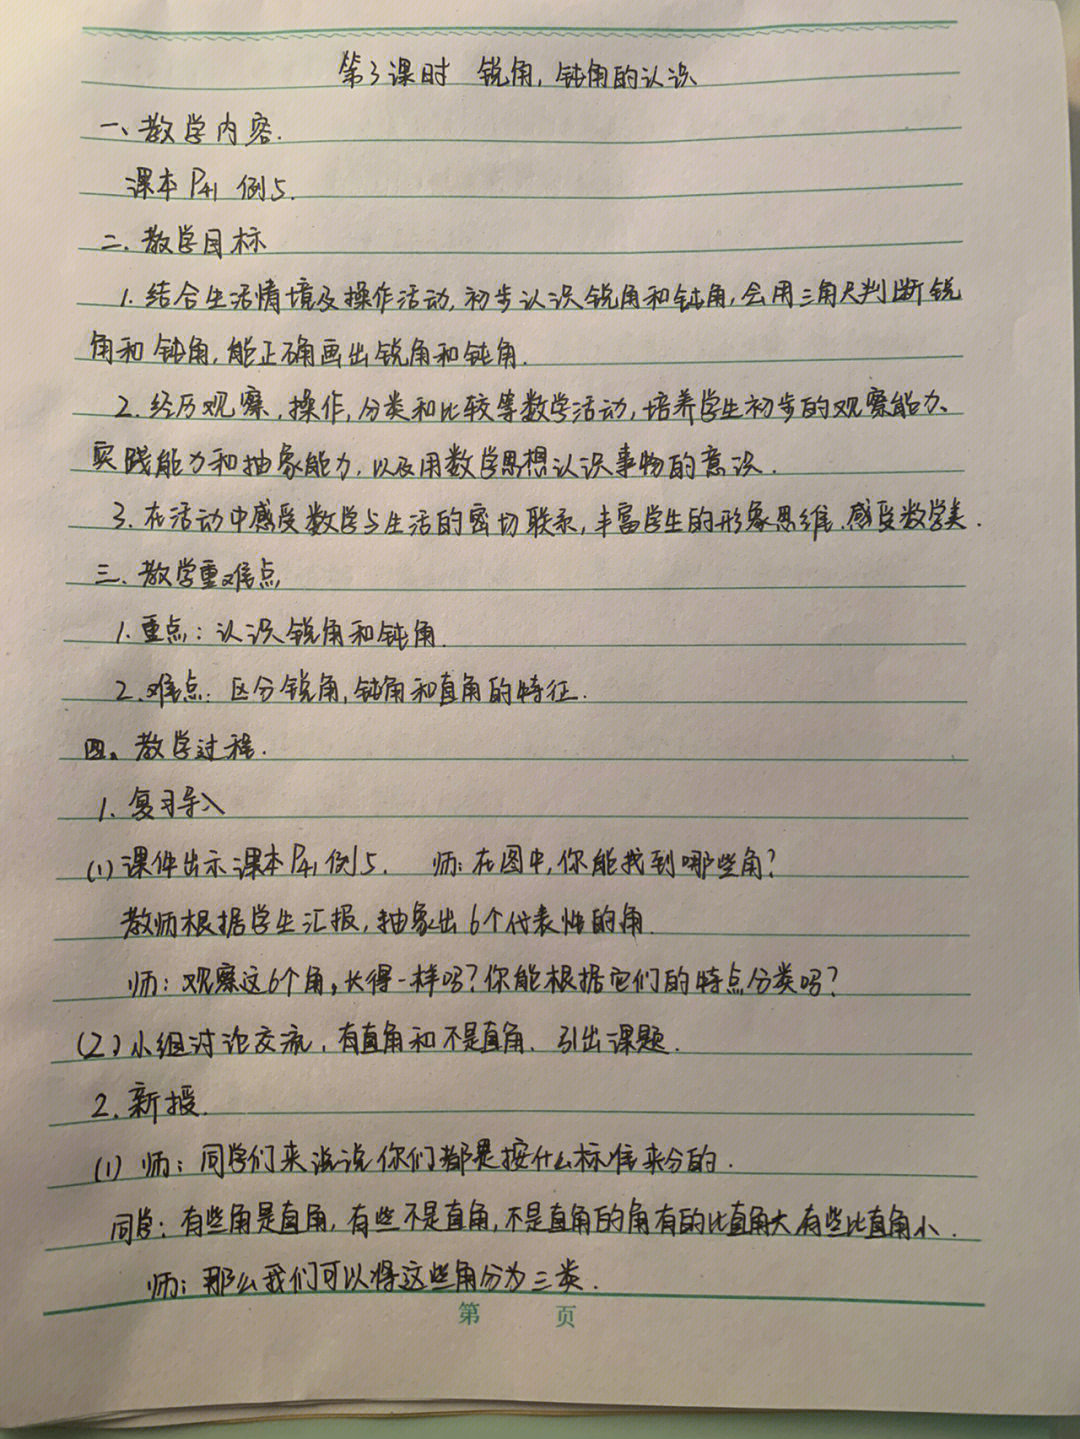 第3课时 锐角,钝角的认识
一、教学内容.
课本P41 例5.
二.教学目标
1.结合生活情境及操作活动,初步认识锐角和钝角,会用三角尺判断锐
角和钝角,能正确画出锐角和钝角.
2.经历观察、操作,分类和比较等数学活动,培养学生初步的观察能力、
实践能力和抽象能力,以及用数学思想认识事物的意识.
3.在活动中感受数学与生活的密切联系,丰富学生的形象思维.感受数学美.
三.教学重难点
1.重点:认识锐角和钝角.
2.难点:区分锐角,钝角和直角的特征.
四、教学过程.
1.复习导入
(1)课件出示课本P41例5. 师:在图中,你能找到哪些角?
教师根据学生汇报,抽象出6个代表性的角.
师:观察这6个角,长得一样吗?你能根据它们的特点分类吗?
(2)小组讨论交流,有直角和不是直角.引出课题.
2.新授.
(1)师:同学们来说说你们都是按什么标准来分的.
同学:有些角是直角,有些不是直角,不是直角的角有的比直角大,有些比直角小.
师:那么我们可以将这些角分为三类.
第 页